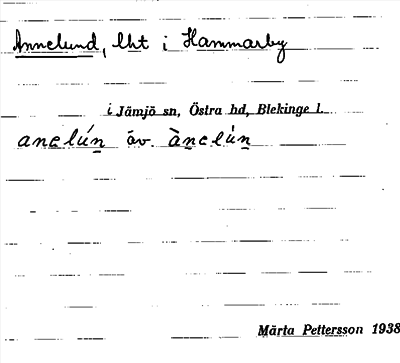 Annelund, lht i Hammarby
i Jämjö sn, Östra hd, Blekinge l.
anelún äv. ànelùn
Märta Pettersson 1938